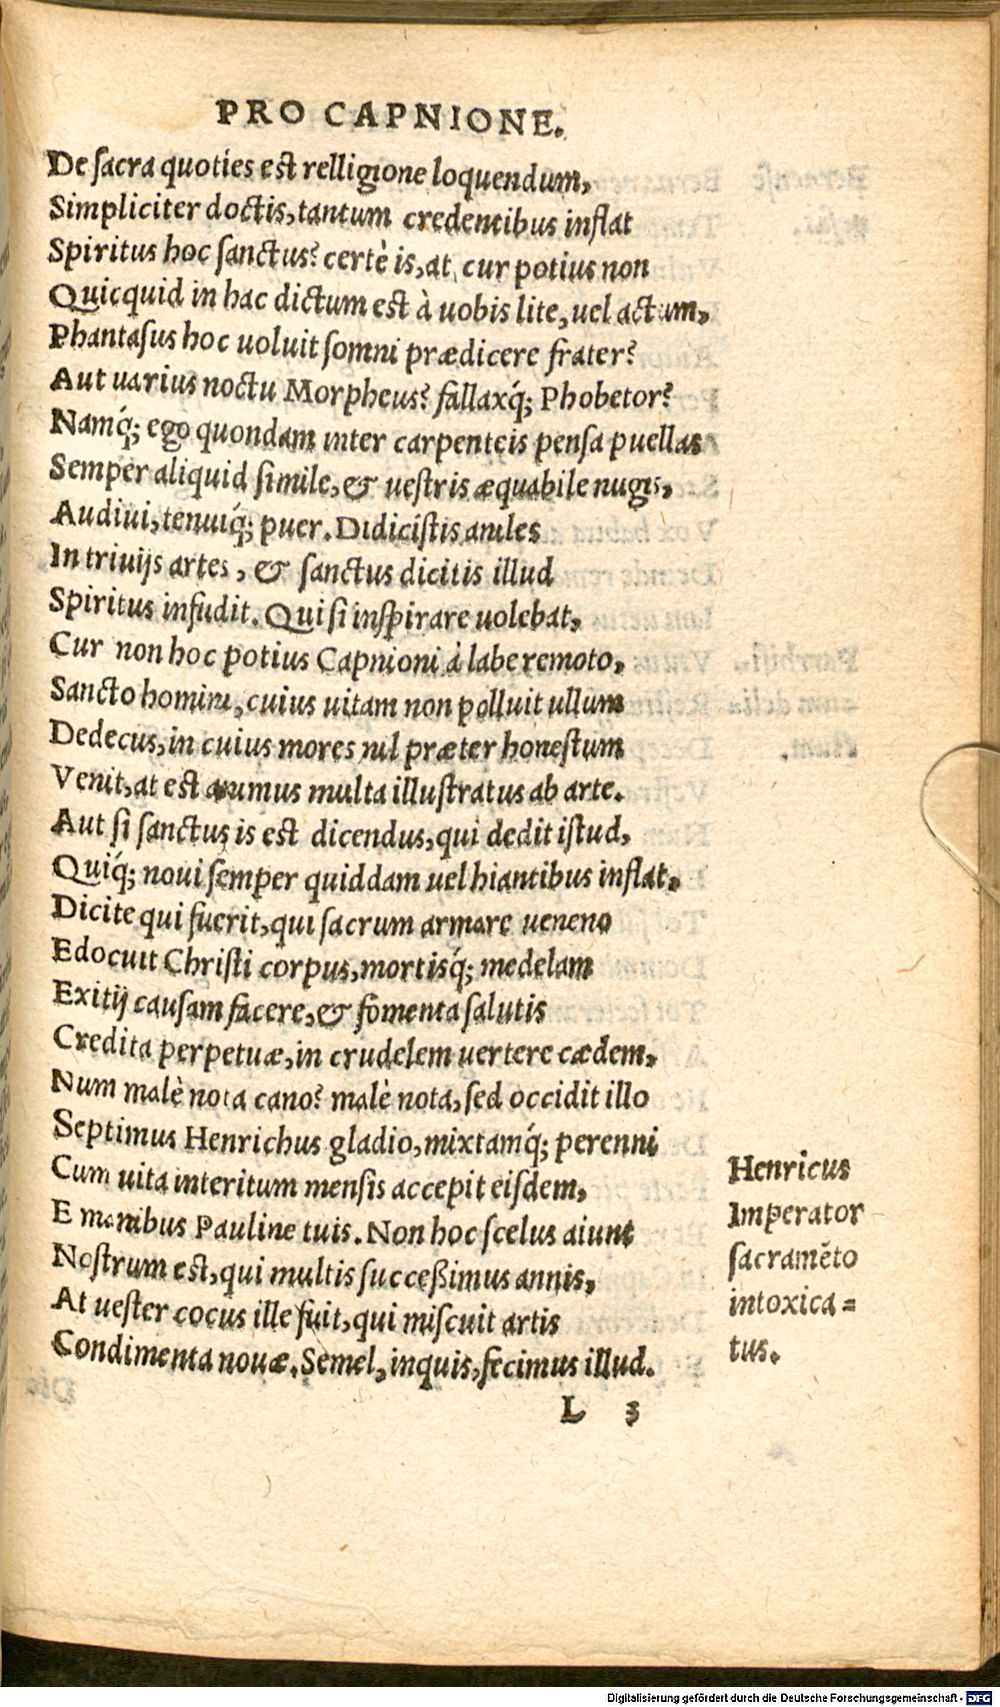 PRO CAPNIONE.
De sacra quoties est relligione loquendum,
Simpliciter doctis, tantum credentibus inflat
Spiritus hoc sanctus? certè is, at cur potius non
Quicquid in hac dictum est à uobis lite, uel actum,
Phantasus hoc uoluit somni prædicere frater?
Aut uarius noctu Morpheus? fallaxq́; Phobetor?
Namq́; ego quondam inter carpenteis pensa puellas
Semper aliquid simile, & uestris æquabile nugis,
Audiui, tenuiq́; puer. Didicistis aniles
In triuijs artes, & sanctus dicitis illud
Spiritus infudit. Qui si inspirare uolebat,
Cur non hoc potius Capnioni à labe remoto,
Sancto homini, cuius uitam non polluit ullum
Dedecus, in cuius mores nil præter honestum
Venit, at est animus multa illustratus ab arte.
Aut si sanctus is est dicendus, qui dedit istud,
Quiq́; noui semper quiddam uel hiantibus inflat,
Dicite qui fuerit, qui sacrum armare ueneno
Edocuit Christi corpus, mortisq́; medelam
Exitij causam facere, & fomenta salutis
Credita perpetuæ, in crudelem uertere cædem,
Num malè nota cano? malè nota, sed occidit illo
Septimus Henrichus gladio, mixtamq́; perenni
Cum uita interitum mensis accepit eisdem,
E manibus Pauline tuis. Non hoc scelus aiunt
Nostrum est, qui multis succeßimus annis,
At uester cocus ille fuit, qui miscuit artis
Condimenta nouæ. Semel, inquis, fecimus illud.
Henricus
Imperator
sacramẽto
intoxica=
tus.
L 3
Digitalisierung gefördert durch die Deutsche Forschungsgemeinschaft - DFG